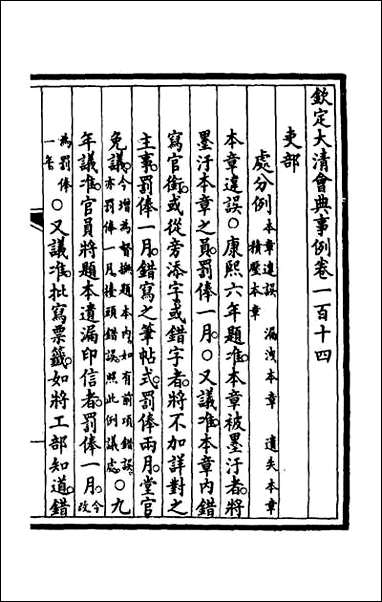 欽定大清會典事例卷一百十四
吏部
處分例 本章違誤 漏洩本章 遺失本章
積壓本章
本章違誤○康熙六年題准本章被墨汙者將
墨汙本章之員罰俸一月○又議准本章內錯
寫官銜或從旁添字或錯字者將不加詳對之
主事罰俸一月錯寫之筆帖式罰俸兩月堂官
免議今增為督撫題本內如有前項錯誤
亦罰俸一月擡頭錯誤照此例議處○九
年議准官員將題本遺漏印信者罰俸一月今改
為罰俸
一年○又議准批寫票籤如將工部知道錯